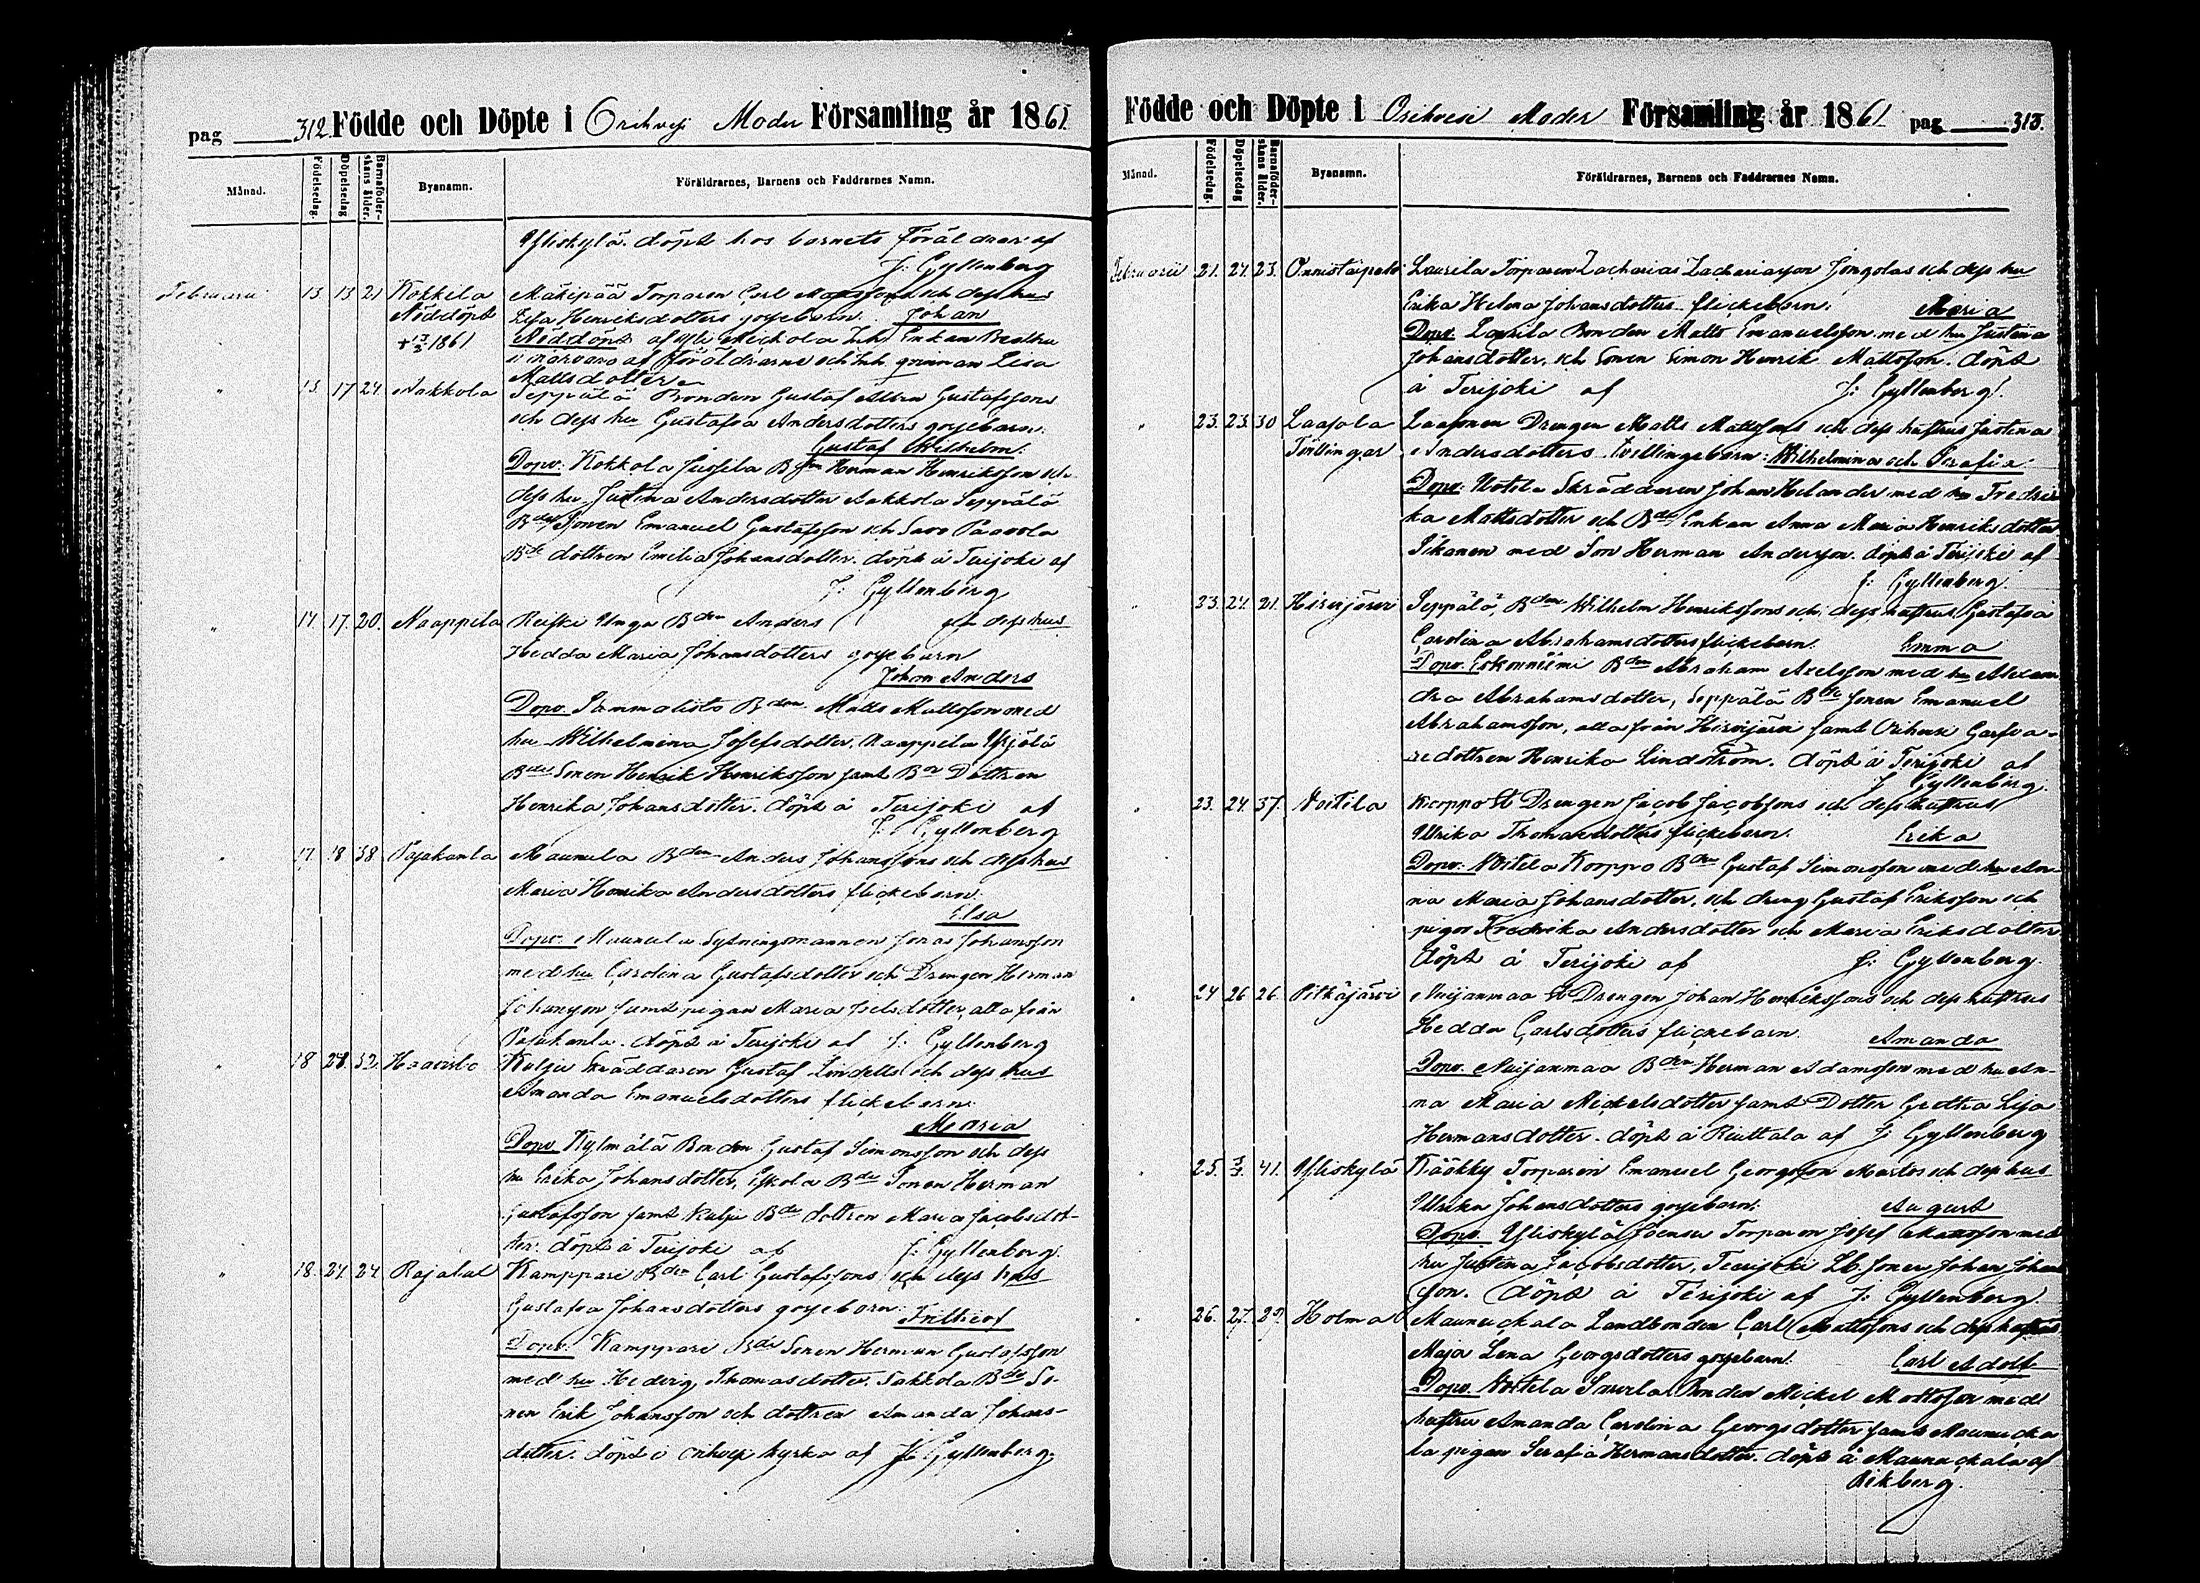 pag 312. Födde och Döpte i Orihvesi Moder Församling år 1861.
Månad. Födelsedag. Döpelsedag Barnaföderskans ålder. Byanamn. Föräldrarnes, Barnens och Faddrarnes Namn.
Yliskylä. döpt hos barnets föräldrar af
J: Gyllenberg
Februarii 13. 13 21 Kokkola Mäkipää Torparen Carl och dess hus
Nöddöpt Lisa Henriksdotters gossebarn. Johan
1861 Nöddöpt af Enkan Beatha
i närvaro af föräldrarne och Inh. qvinnan Lisa
Mattsdotter
" 15. 17 24. Aakkola Seppälä Bonden Gustaf Gustafssons
och dess hu Gustafva Andersdotters gossebarn.
Gustaf Wilhelm.
Dopv. Kokkola Jussila Herman Henriksson och
dess hu Justina Andersdotter Aakkola Seppälä
Bde Sonen Emanuel Gustafsson och Savo Paavola
Bde dottren Emelia Johansdotter. döpt å Terijoki af
J: Gyllenberg
" 17. 17. 20. Naappila Unga Bden Anders och dess hus
Hedda Maria Johansdotters gossebarn
Johan Anders
Dopv. Sammalisto Bden Matts Mattsson med
hu Wilhelmina Josefsdotter, Naappila Yrjölä
Bde Sonen Henrik Henriksson samt Bde Dottren
Henrika Johansdotter. döpt å Terijoki af
J: Gyllenberg
" 17. 18 38. Pajukanta Maunula Bden Anders Johanssons och dess hus
Maria Henrika Andersdotters flickebarn.
Elsa
Dopv. Maunula Sytningsmannen Jonas Johansson
med hu Carolina Gustafsdotter och Drengen Herman
Johansson samt pigan Maria dotter, alla från
Pajukanta. döpt å Terijoki af J: Gyllenberg
" 18 24. 32. Haavisto Kulju Skräddaren Gustaf Lindells och dess hus
Amanda Emanuelsdotters flickebarn.
Maria
Dopv. Kylmälä Bonden Gustaf Simonsson och dess
hu Erika Johansdotter, Eskola Bde Sonen Herman
Gustafsson samt Kulju Bde dottren Maria Jacobsdot-
ter. döpt å Terijoki af J: Gyllenberg.
" 18. 24. 24. Rajalal Kamppari Bden Carl Gustafssons och dess hus
Gustafva Johansdotters gossebarn:
Frithiof
Dopv. Kamppari Bde Sonen Herman Gustafsson
med hu Hedvig Thomasdotter. Sakkola Bde So-
nen Erik Johansson och dottren Amanda Johans-
dotter. döpt i Orihvesi kyrka af J: Gyllenberg.
Födde och Döpte i Orihvesi Moder Församling år 1861. pag 313.
Månad. Födelsedag. Döpelsedag Barnaföderskans ålder. Byanamn. Föräldrarnes, Barnens och Faddrarnes Namn.
Februarii 21. 24. 23. Onnistaipale Laurila Torparen Zacharias Zachariasson Jongolas och dess hu
Erika Helena Johansdotters flickebarn. Maria
Dopv. Laurila Bonden Matts Emanuelsson med hu Justina
Johansdotter, och Sonen Simon Henrik Mattsson. döpt
å Terijoki af J: Gyllenberg.
" 23. 23. 30 Laasola Laasonen Drengen Matts Mattssons och dess hustrus Justina
Tvillingar Andersdotters tvillingebarn: Wilhelmina och Serafia
Dopv. Voitila Skräddaren Johan Helander med hu Fredri-
ka Mattsdotter och Bde Enkan Anna Maria Henriksdotter
med Son Herman Andersson. döpt å Terijoki af
J: Gyllenberg.
23. 24. 21. Hirsijärvi Seppälä, Bden Wilhelm Henrikssons och dess hustrus Gustafva
Carolina Abrahamsdotters flickebarn. Emma
Dopv. Eskonniemi Bden Abraham Axelsson med hu Alexan-
dra Abrahamsdotter, Seppälä Bde Sonen Emanuel
Abrahamsson, alla från Hirsijärvi samt Orihvesi Garfva-
redottren Henrika Lindström. döpt å Terijoki af
J: Gyllenberg.
23. 24 37. Voitila Korppo Drengen Jacob Jacobssons och dess hustrus
Ulrika Thomasdotters flickebarn. Erika
Dopv. Voitila Korppo Bden Gustaf Simonsson med hu An-
na Maria Johansdotter, och dreng Gustaf Eriksson och
pigor Fredrika Andersdotter och Maria Eriksdotter
döpt å Terijoki af J: Gyllenberg.
24 26 26. Pitkäjärvi Nuijanmaa Drengen Johan Henrikssons och dess hustrus
Hedda Carlsdotters flickebarn. Amanda
Dopv. Nuijanmaa Bden Herman Adamsson med hu An-
na Maria Mickelsdotter samt Dotter Gretha Lisa
Hermansdotter. döpt å Riuttala af J: Gyllenberg
25. 3/3 41. Yliskylä Kääkky Torparen Emanuel Georgsson och dess hus
Ulrika Johansdotters gossebarn. August
Dopv. Yliskylä Torparen Josef med
hu Justina Jacobsdotter, Terijoki Lb. Sonen Johan Johans-
son. döpt å Terijoki af J: Gyllenberg.
26. 27. 29. Holma Maunuckala Landbonden Carl Mattssons och dess hustrus
Maja Lena Georgsdotters gossebarn. Carl Adolf
Dopv. Voitila Bonden Mickel Mattsson med
hustru Amanda Carolina Georgsdotter samt Maunucka-
la pigan Serafia Hermansdotter. döpt å Maunuckala af
Rikberg.